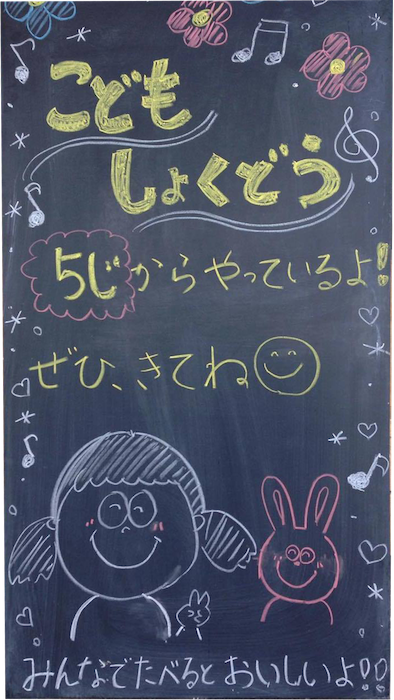 こども
しょくどう
5じからやっているよ!
ぜひ、きてね
みんなでたべるとおいしいよ!!